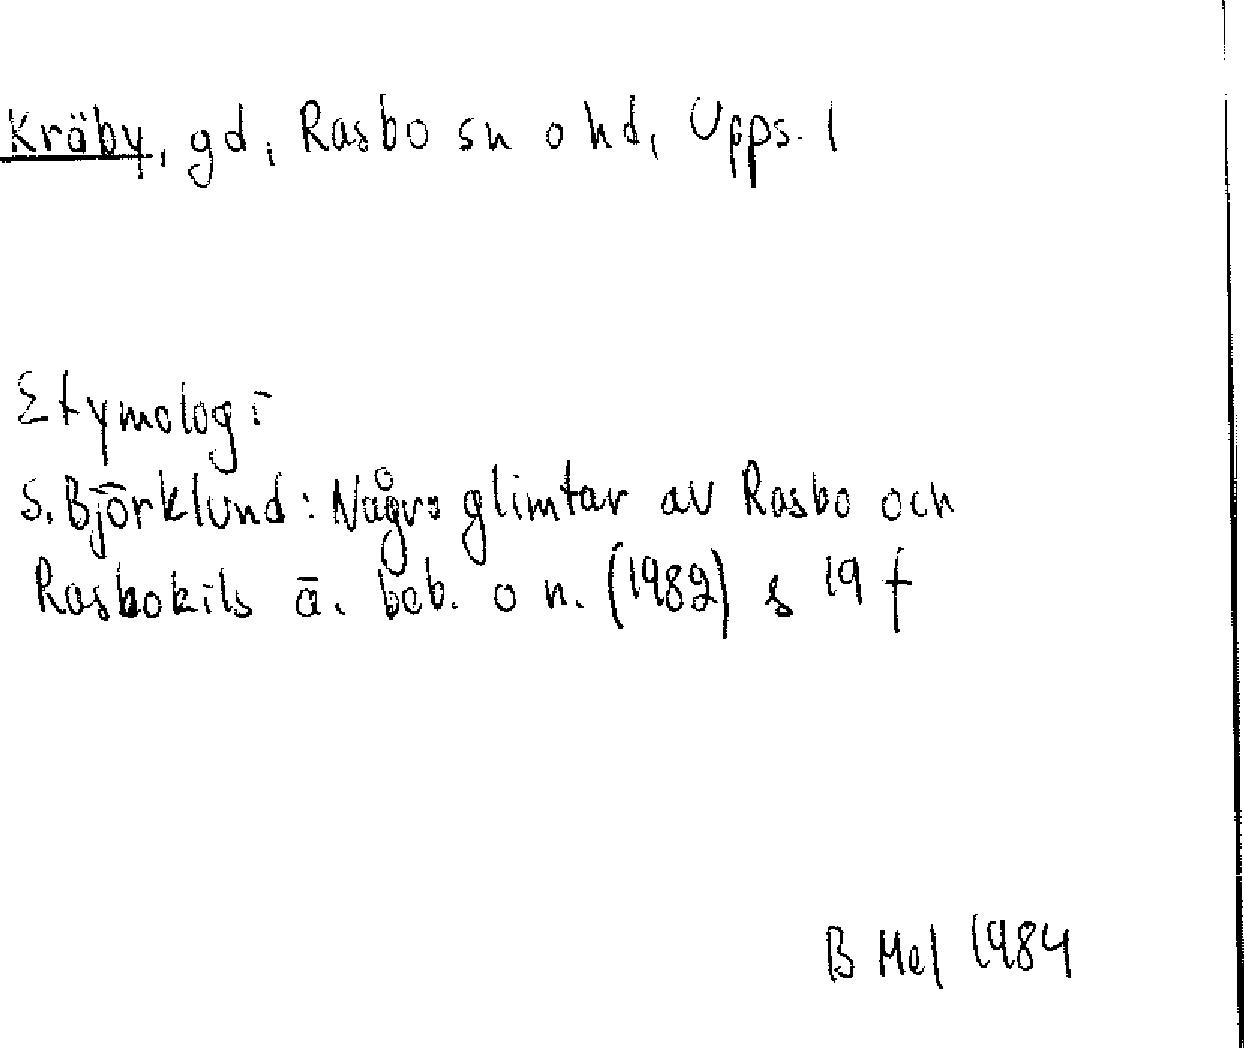 Kräby, gd, Rasbo sn o hd, Upps. l
Etymologi
S. Björklund: Några glimtar av Rasbo och
Rasbokils ä. beb. o n. (1982) s 19 f
B Mel 1984